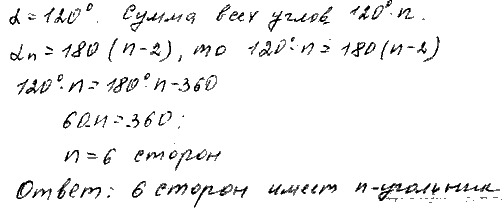 α = 120°. Сумма всех углов 120°·n.
αn = 180(n-2), то 120°·n = 180(n-2)
120°·n = 180°·n-360
60n = 360;
n = 6 сторон
Ответ: 6 сторон имеет n-угольник